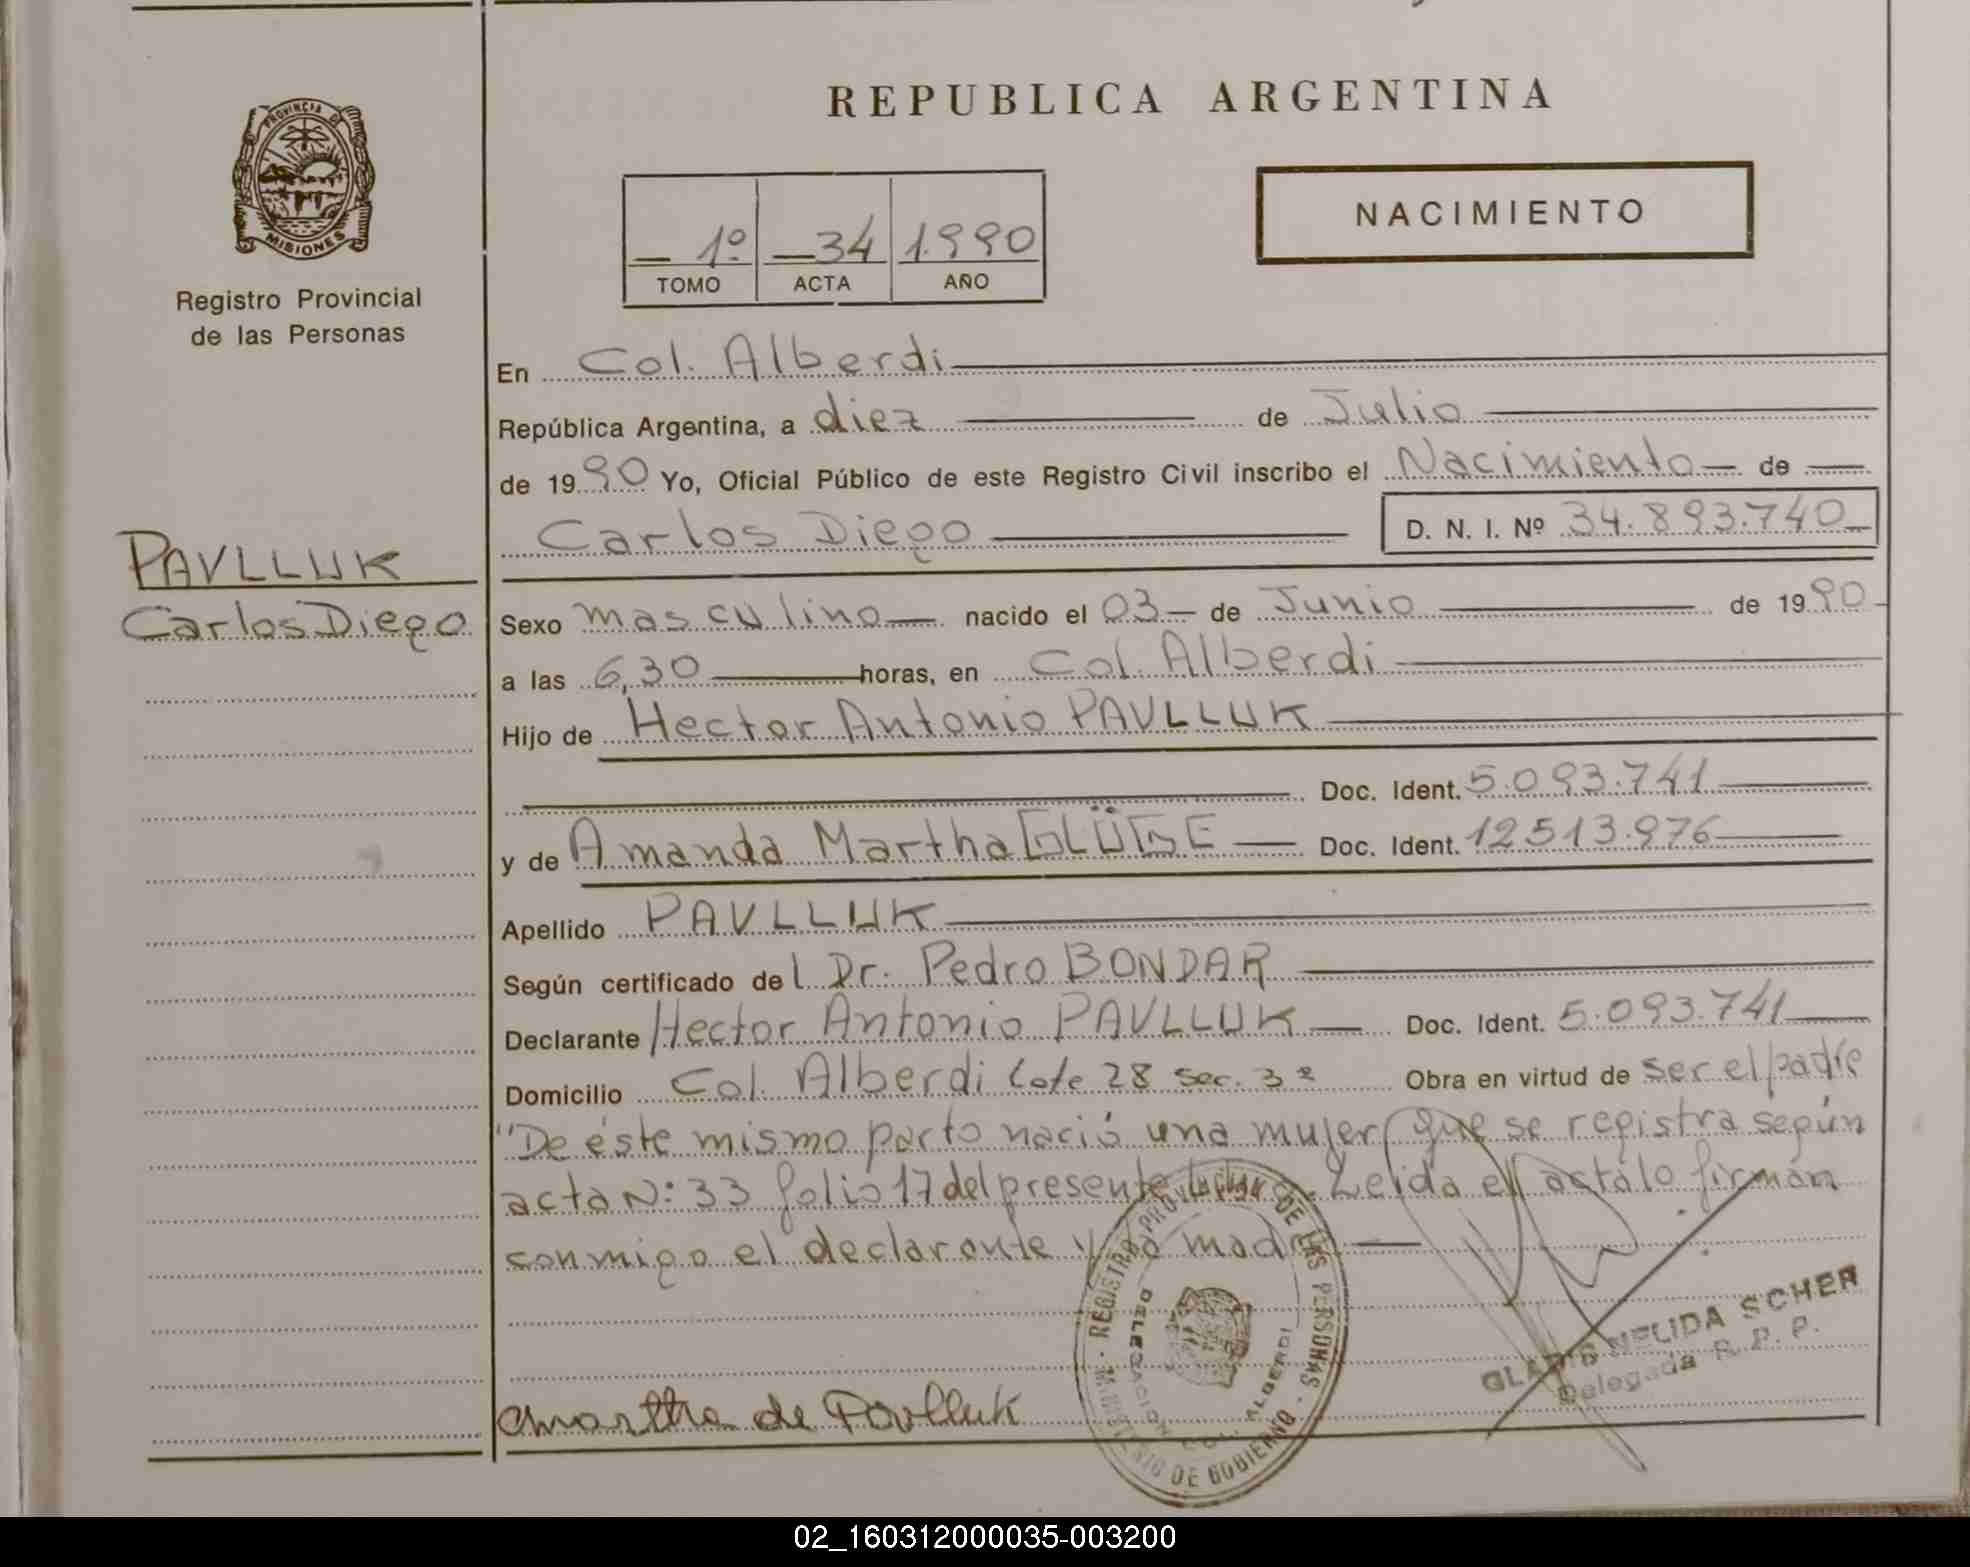 REPUBLICA ARGENTINA
PROVINCIA D
MISIONES
Registro Provincial
de las Personas
NACIMIENTO
1º 34 1.990
TOMO ACTA AÑO
En Col. Alberdi
República Argentina, a diez de Julio
de 1990 Yo, Oficial Público de este Registro Civil inscribo el Nacimiento de
Carlos Diego D. N. I. Nº 34.893.740
PAVLLUK
Carlos Diego
Sexo masculino nacido el 03 de Junio de 1990
a las 6,30 horas, en Col. Alberdi
Hijo de Hector Antonio PAVLLUK
Doc. Ident. 5.093.741
y de Amanda Martha Doc. Ident. 12513.976
Apellido PAVLLUK
Según certificado del Dr. Pedro BONDAR
Declarante Hector Antonio PAVLLUK Doc. Ident. 5.093.741
Domicilio Col. Alberdi Lote 28 sec. 3ª Obra en virtud de ser el padre
"De éste mismo parto nació una mujer que se registra según
acta Nº: 33 folio 17 del presente Leida el acta lo firman
conmigo el declarante y la madre
REGISTRO PROVINCIAL DE LAS PERSONAS
DELEGACION COL. ALBERDI
MINISTERIO DE GOBIERNO
GLADIS NELIDA SCHER
Delegada R. P. P.
Martha de Pavlluk
02_160312000035-003200